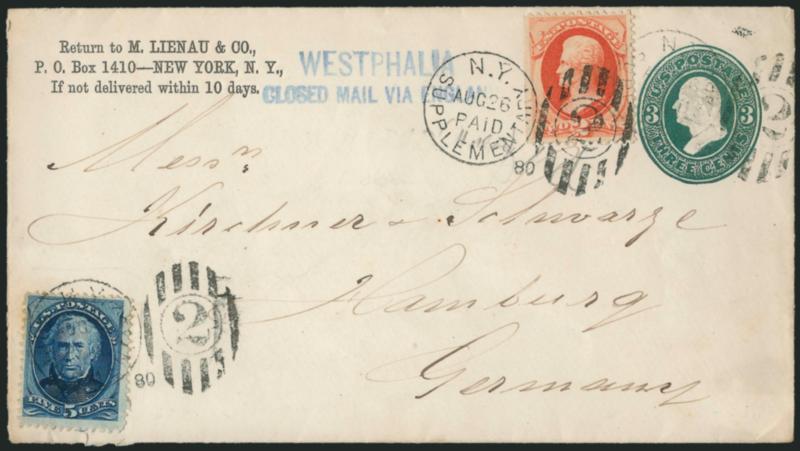 Return to M. LIENAU & CO.,
P. O. Box 1410—NEW YORK, N. Y.,
If not delivered within 10 days.
WESTPHALIA
CLOSED MAIL VIA ENGLAN
N.Y.
AUG 26
PAID
SUPPLEMENTARY
80
2
U.S. POSTAGE
3 3
THREE CENTS
2
Messrs
Kirchner & Schwarze
Hamburg
Germany
U.S. POSTAGE
FIVE 5 CENTS
80
2